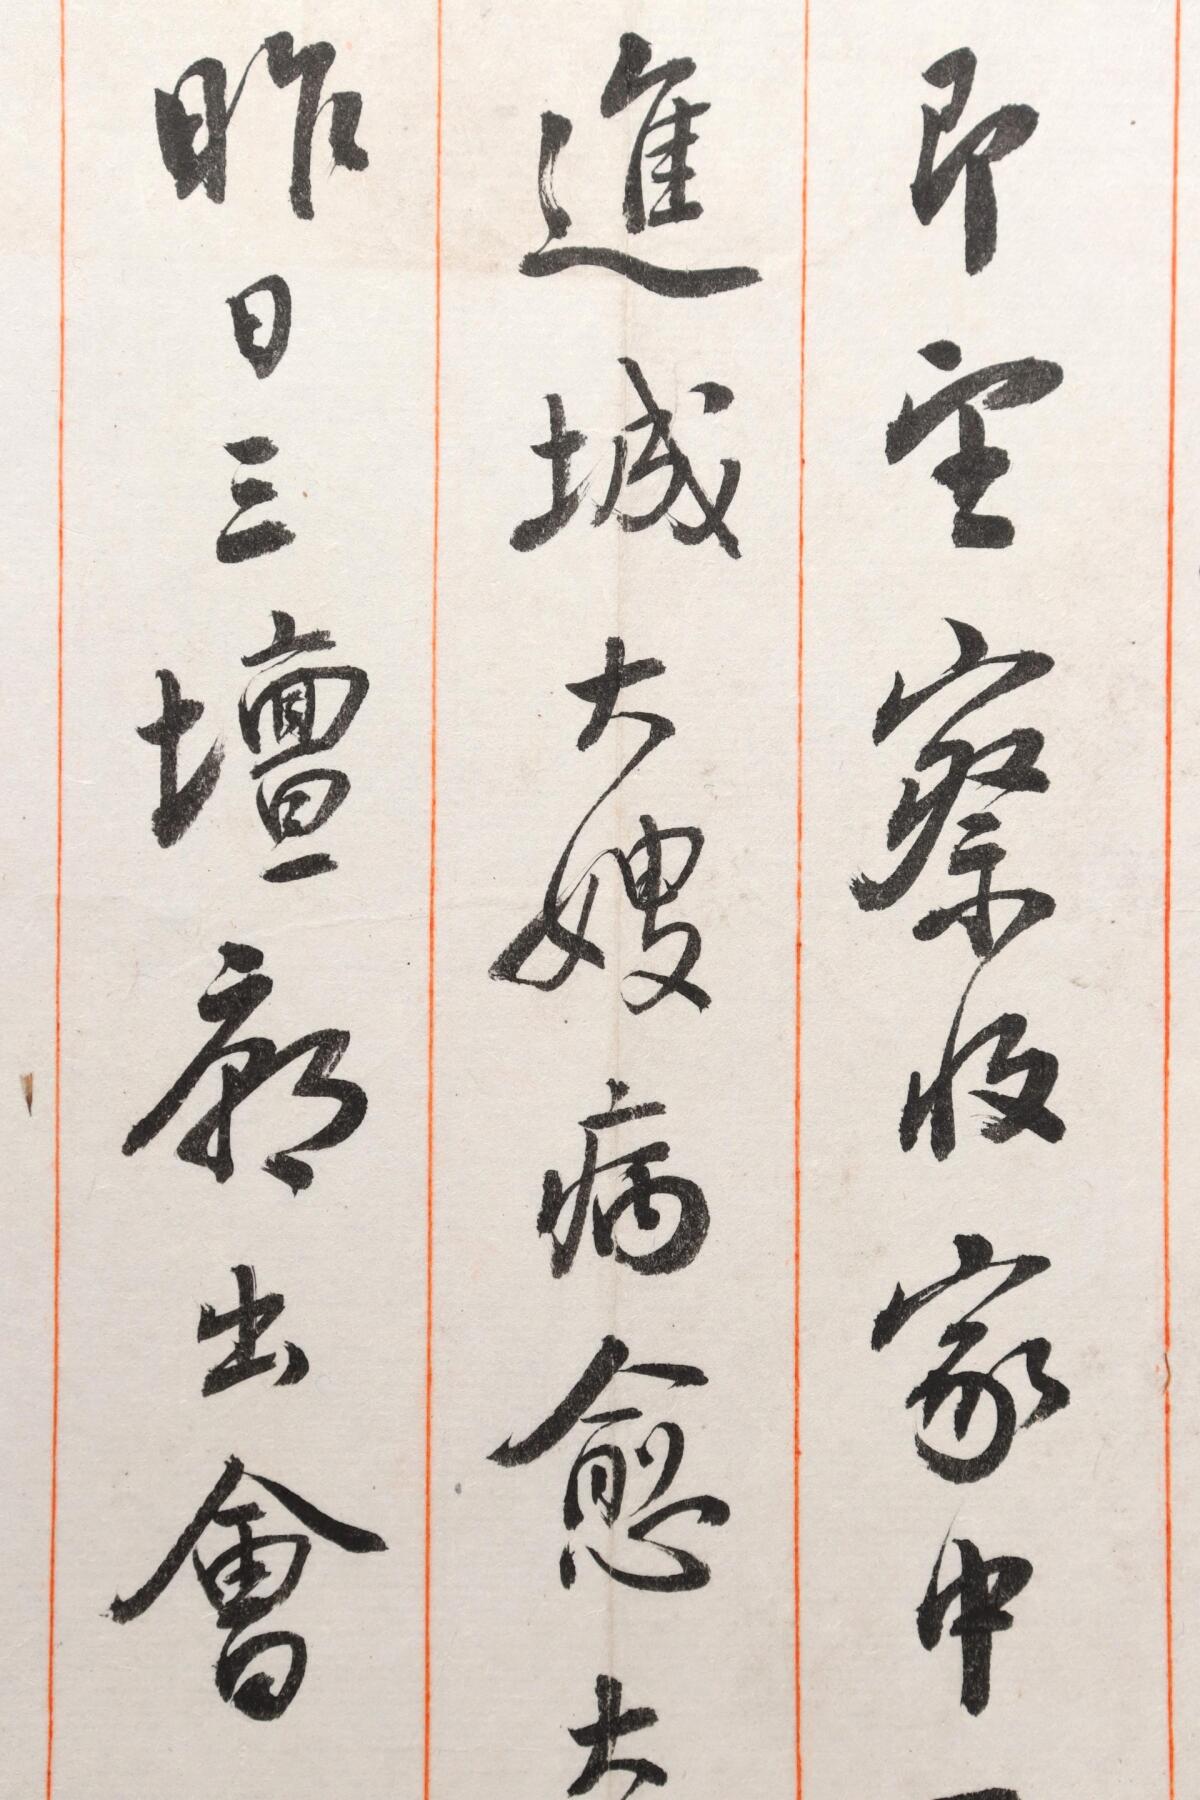 即望察收家中
進城大嫂病愈大
昨日三壇廟出會